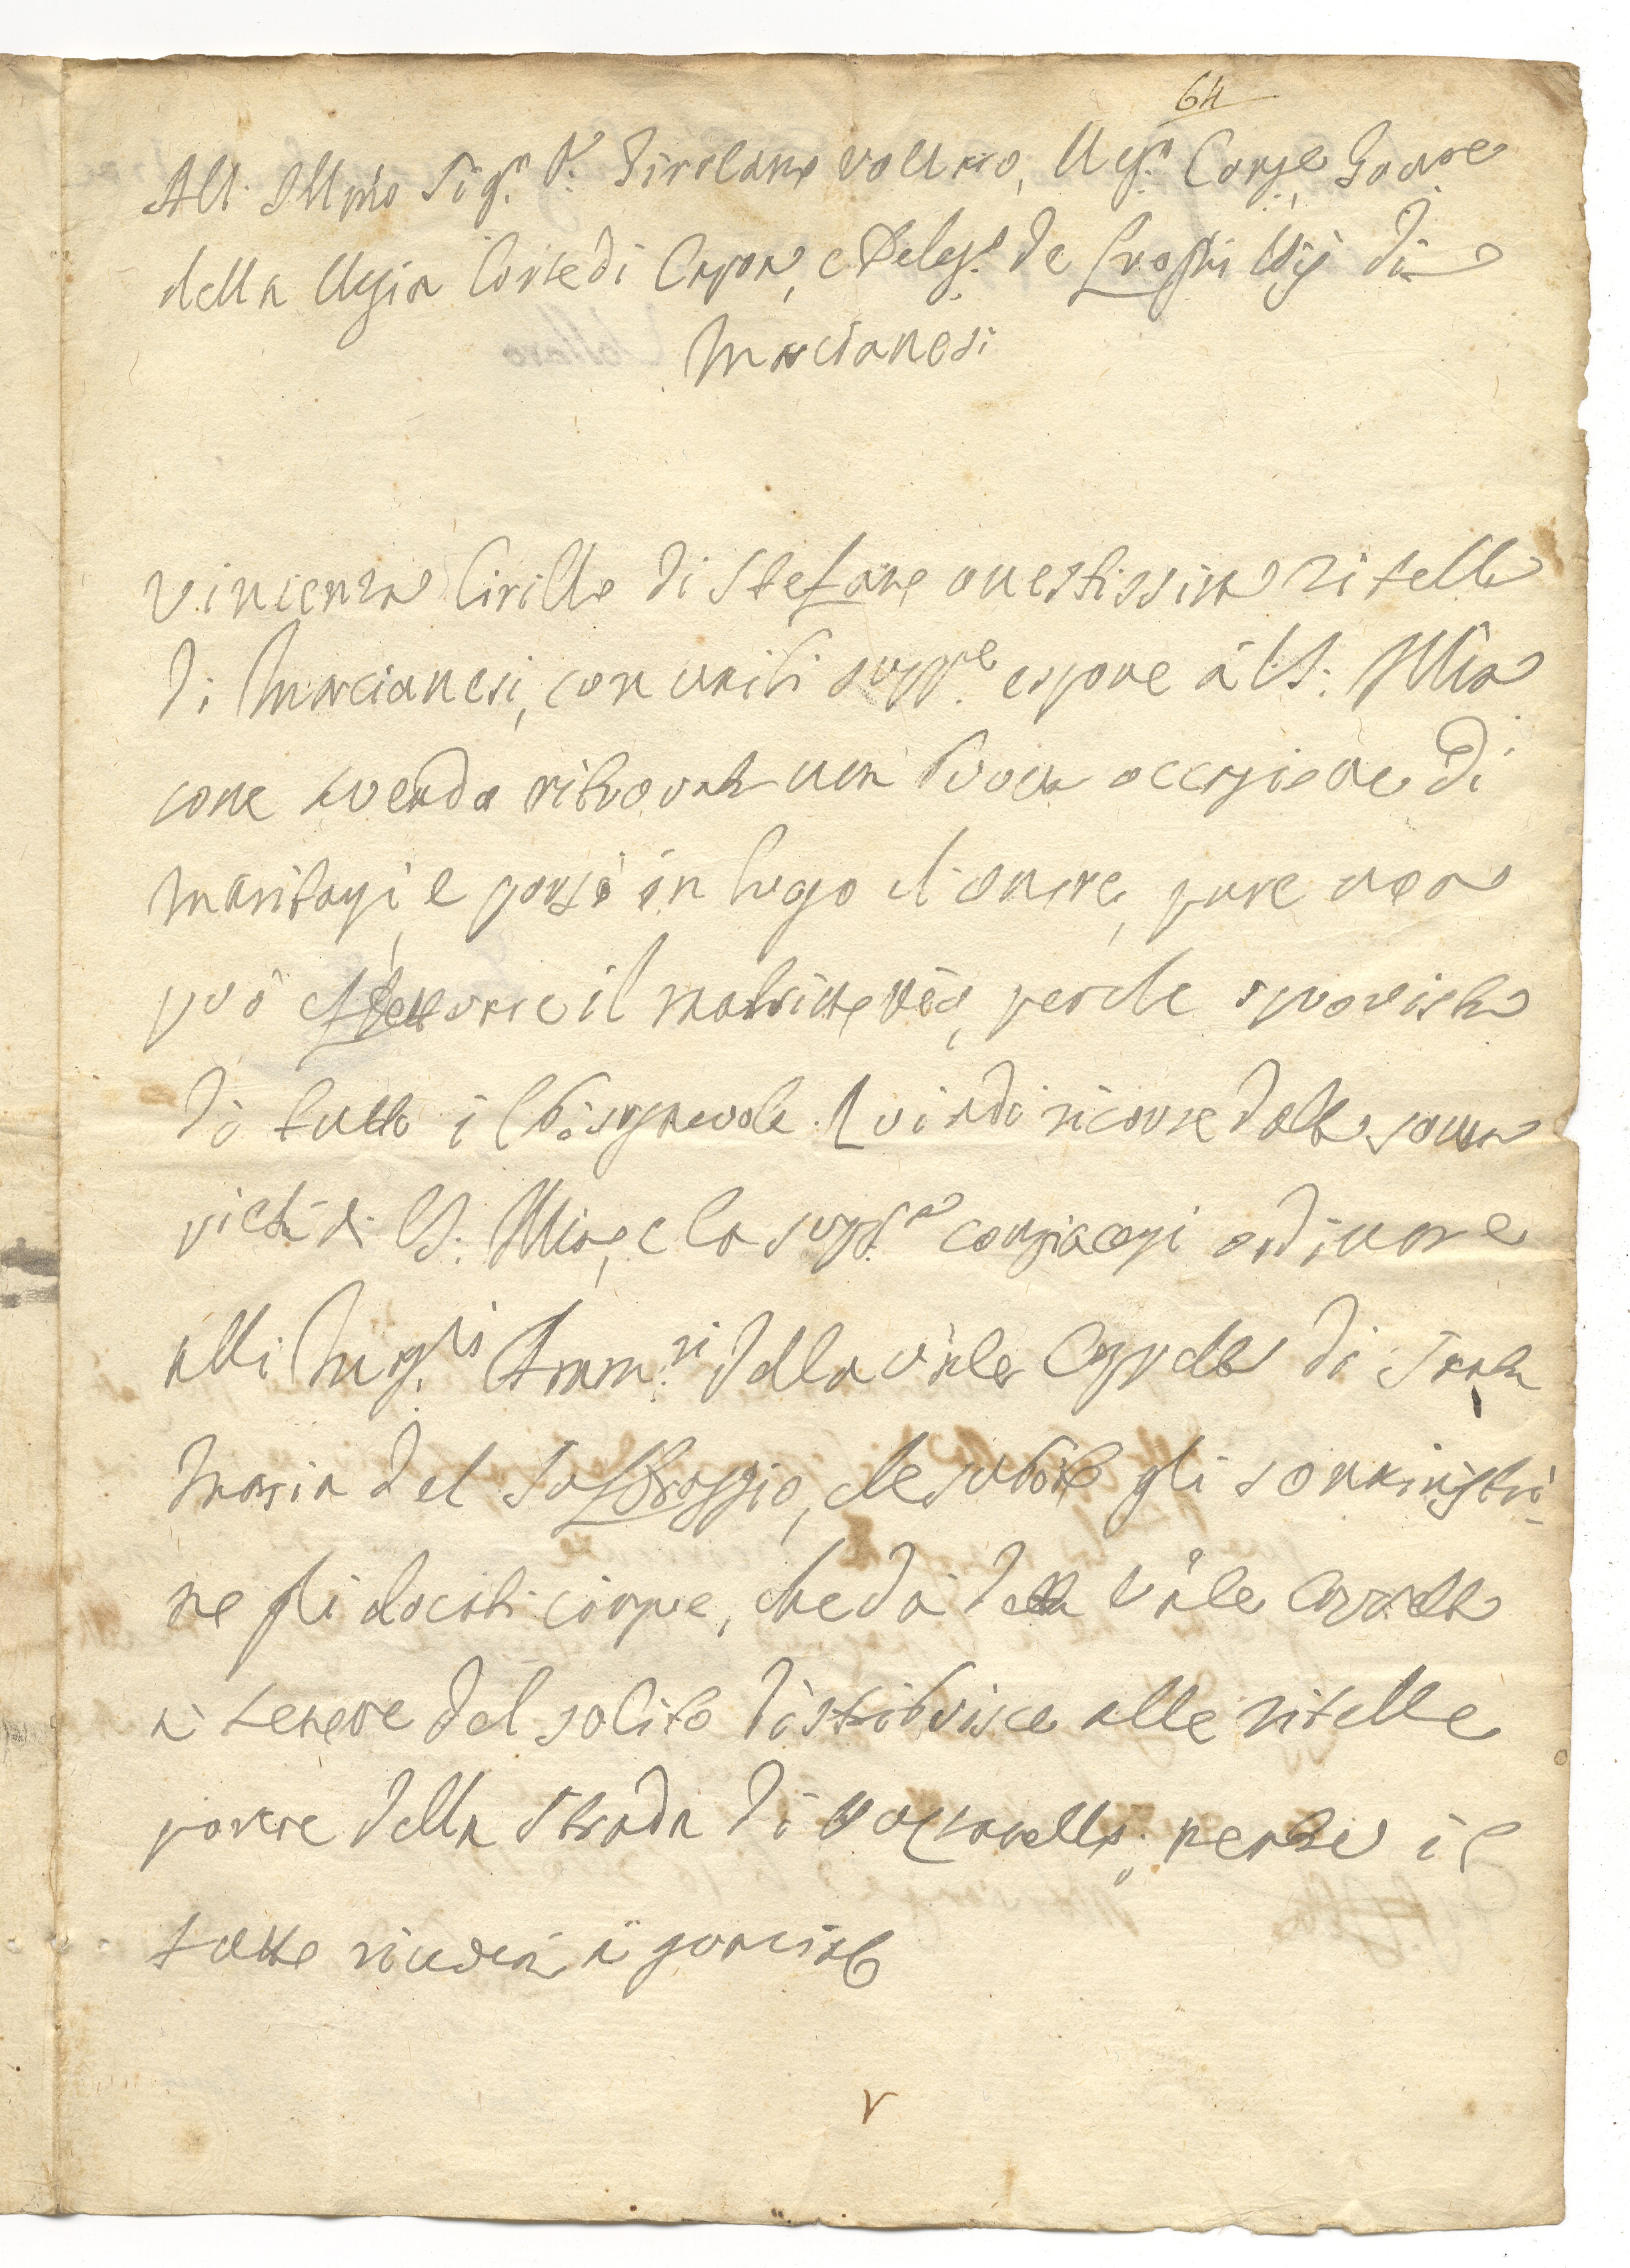 64
All' Illmo Sig.r D. Girolamo Vollaro, Reg.o Cons.re Gov.re
della Regia Corte di Capoa, e Deleg.o de Luoghi Pij di
Marcianesi
Vincenza Cirillo di Stefano onestissima zitella
di Marcianesi, con umili supp.e espone à V.S. Illma
come avendo ritrovata una buona occasione di
maritarsi, e ponersi in luogo d'onore, pure non
può effettuare il matrimonio, perche sprovista
di tutto il bisognevole. Quindi ricorre dalla somma
pietà di V.S. Illma, e la supp.a compiacersi ordinare
alli Mag.ci Amm.ri della Ven.le Cappella di Santa
Maria del Suffraggio, che subito gli somministri-
no gli docati cinque, che da detta Ven.le Cappella
a tenore del solito distribuisce alle zitelle
povere della Strada di, mentre il
tutto riceverà a grazia